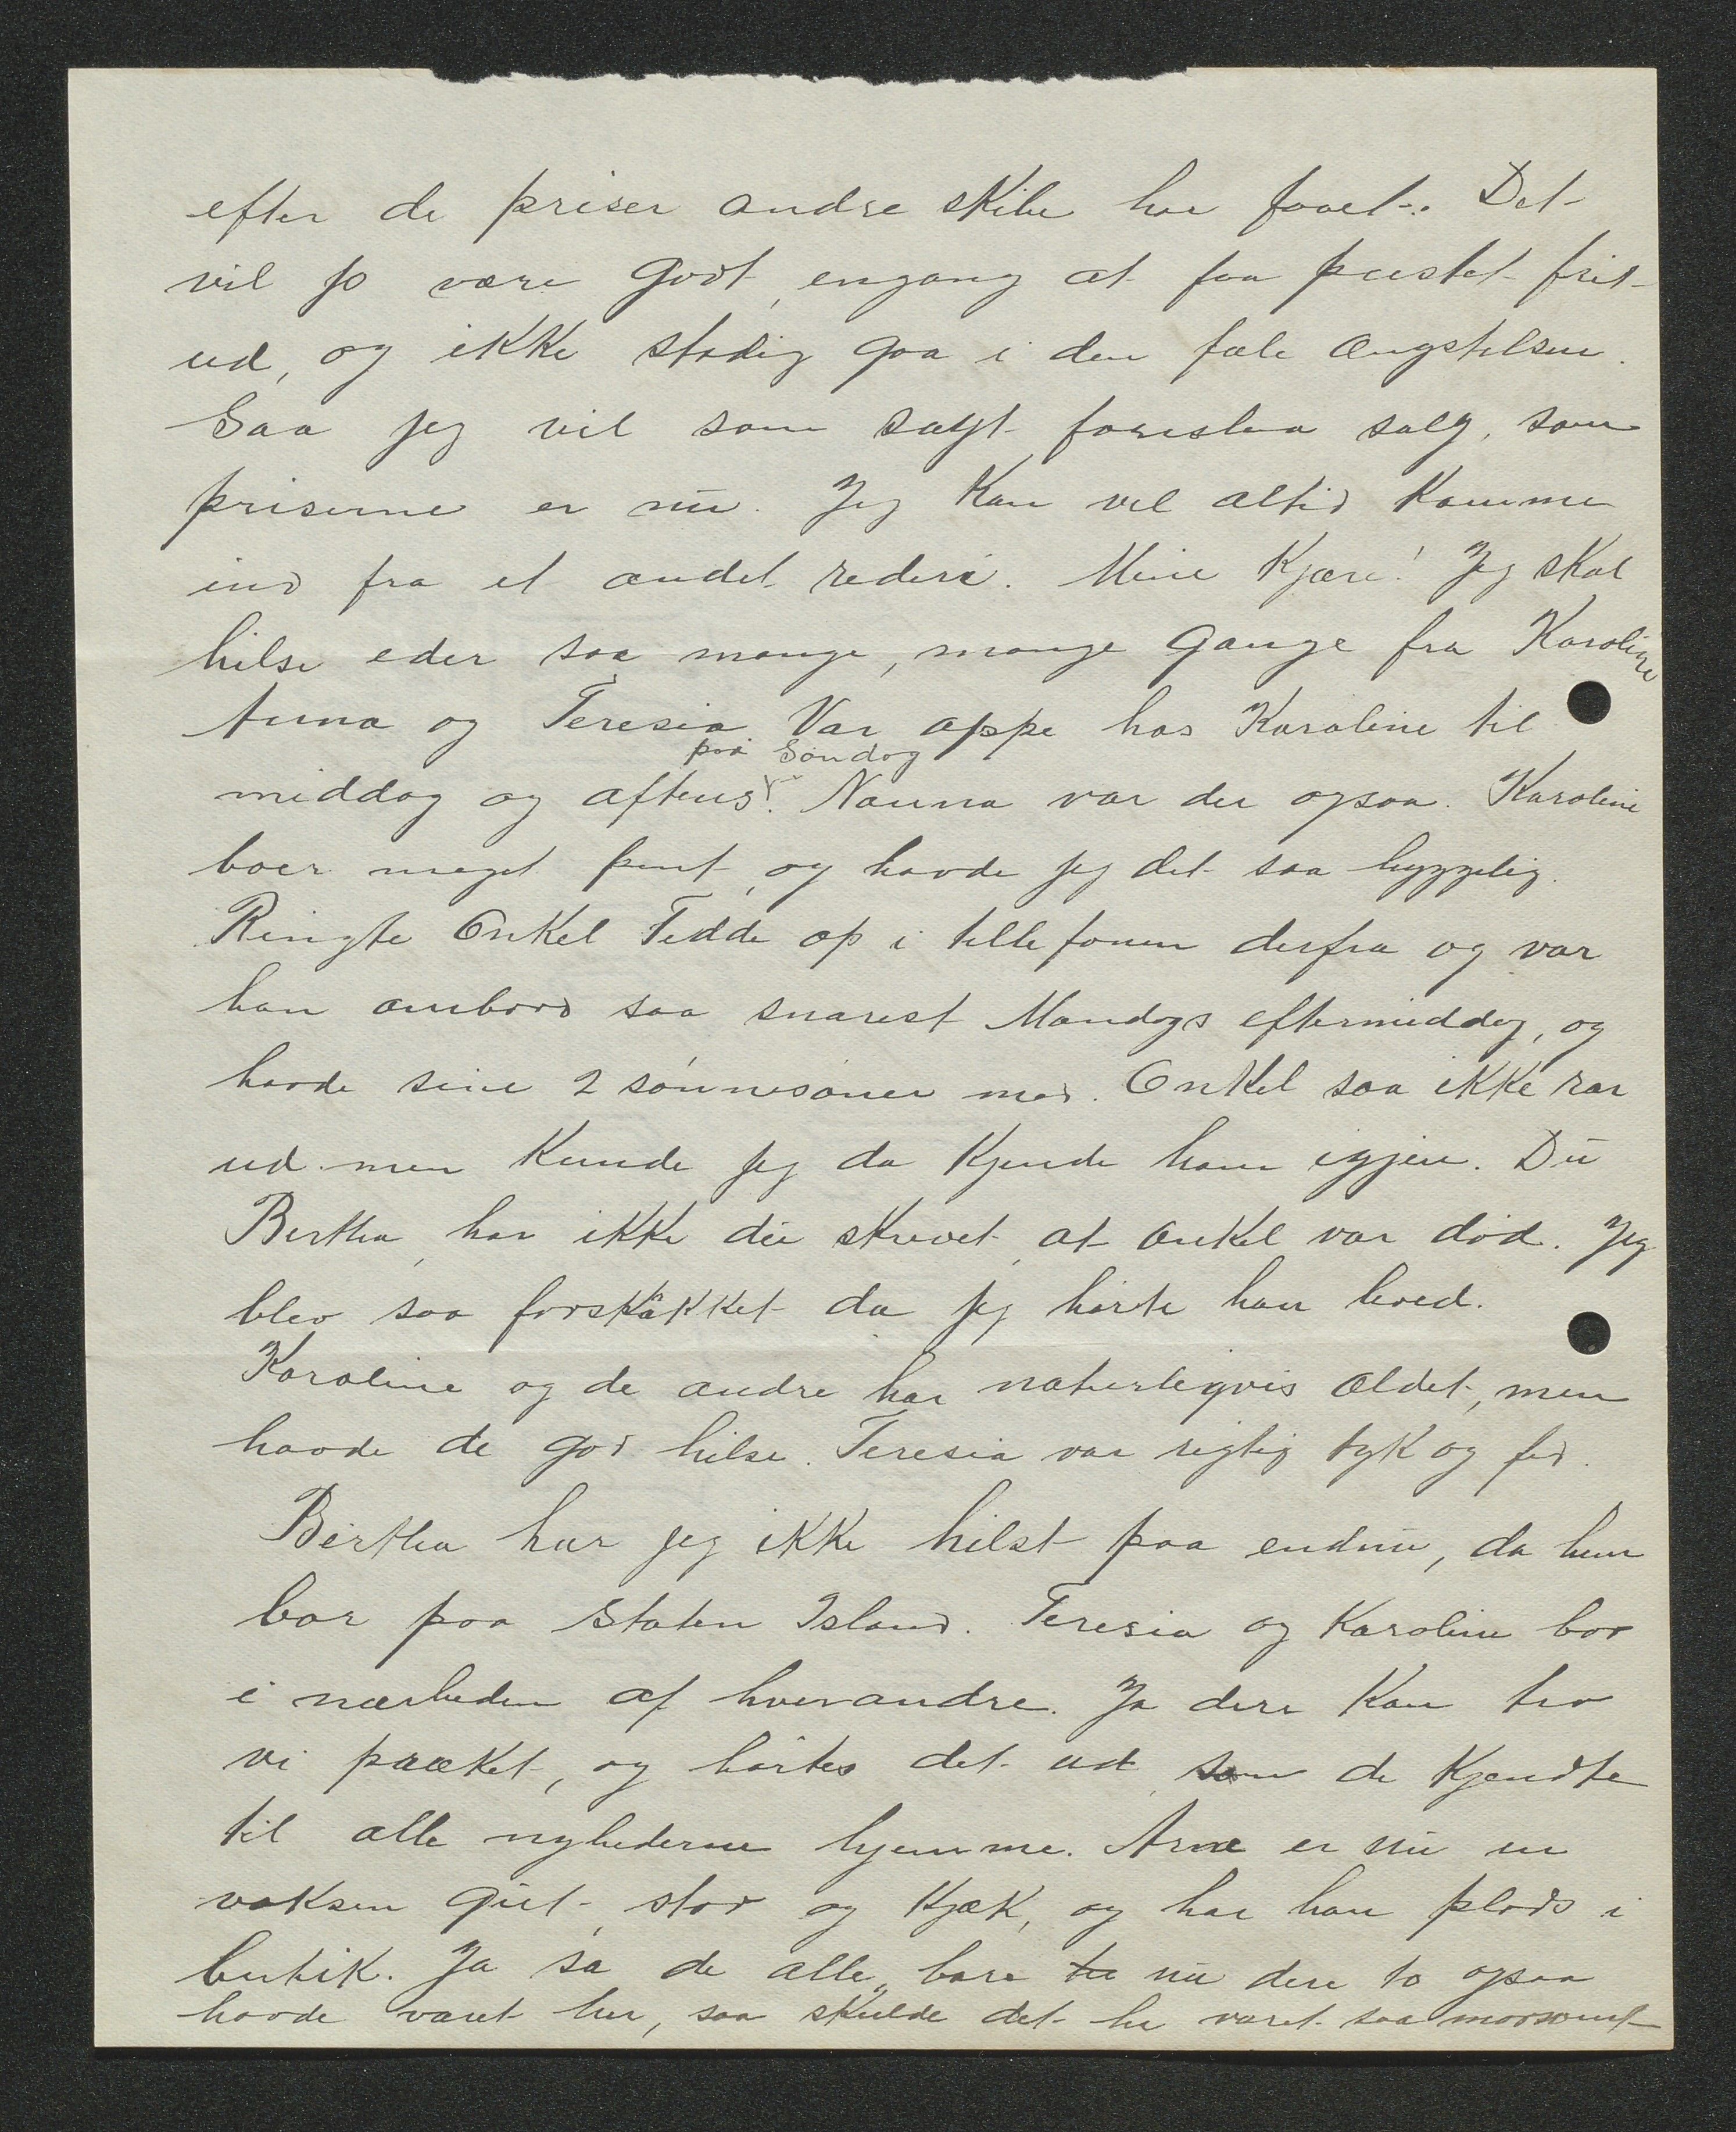 efter de priser andre skibe har faaet. Det
vil jo være godt, engang at faa pustet frit
ud, og ikke stadig gaa i den fæle ængstelsen.
Saa jeg vil som sagt foreslaa salg, som
priserne er nu. Jeg kan vel altid komme
ind fra et andet rederi. Mine Kjære! Jeg skal
hilse eder saa mange, mange gange fra Karoline
Anna og Teresia. Var oppe hos Karoline til
paa Søndag
middag og aftens. Nanna var der ogsaa. Karoline
boer meget pent, og havde jeg det saa hyggelig.
Ringte Onkel Tedde op i tellefonen derfra og var
han ombord saa snarest Mandags eftermiddag, og
havde sine 2 sønnesøner med. Onkel saa ikke rar
ud men kunde jeg da kjende ham igjen. Du
Bertha, har ikke du skrevet, at onkel var død. Jeg
blev saa forskåkket da jeg hørte han leved.
Karoline og de andre har naturligvis ældet, men
havde de god hilse. Teresia var rigtig tyk og fed.
Bertha har jeg ikke hilst paa endnu, da hun
bor paa Staten Island. Teresia og Karoline bor
i nærheden af hverandre. Ja dere kan tro
vi præket, og hørtes det ud som de kjendte
til alle nyhederne hjemme. Arne er nu en
voksen gut, stor og kjæk, og har han plads i
butik. Ja sa de alle, bare nu dere to ogsaa
havde været her, saa skulde det ha været saa morsomt